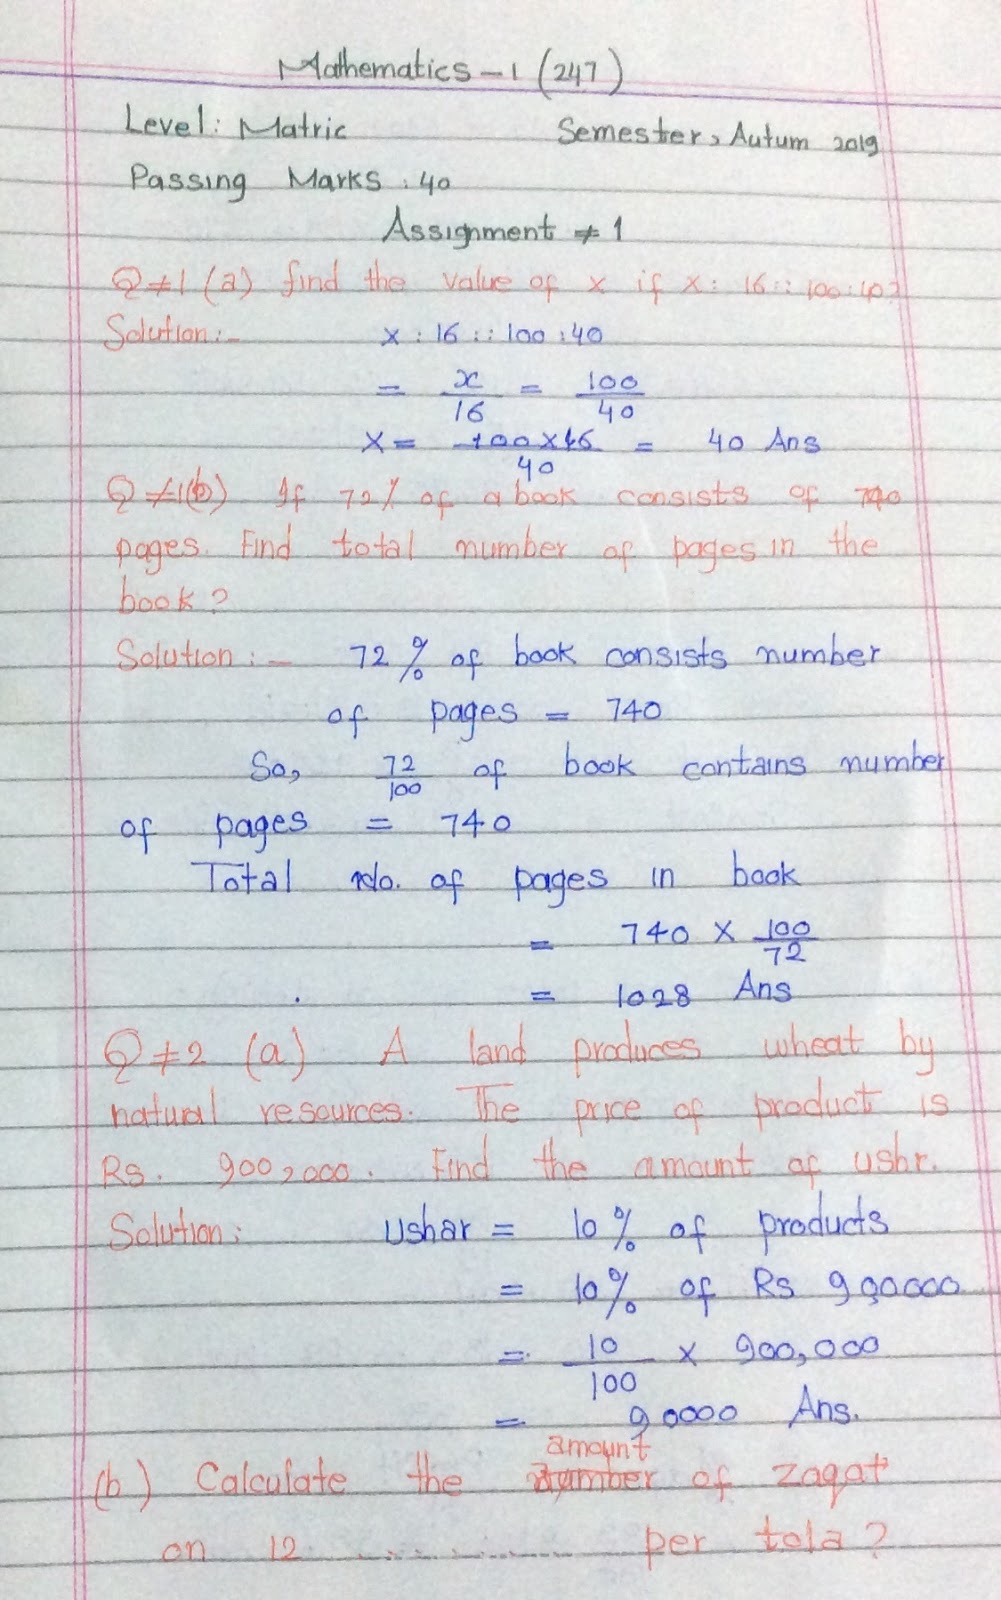 Mathematics - 1 (247)
Level: Matric Semester, Autum 2019
Passing Marks : 40
Assignment # 1
Q#1 (a) find the value of x if x : 16 :: 100 : 40?
Solution:- x : 16 :: 100 : 40
= x/16 = 100/40
x = 100 x 16/40 = 40 Ans
Q#1(b) If 72% of a book consists of 740
pages. Find total number of pages in the
book?
Solution :- 72% of book consists number
of pages = 740
So, 72/100 of book contains number
of pages = 740
Total No. of pages in book
= 740 x 100/72
= 1028 Ans
Q#2 (a) A land produces wheat by
natural resources. The price of product is
Rs. 900,000. Find the amount of ushr.
Solution: Ushar = 10% of products
= 10% of Rs 900000
= 10/100 x 900,000
= 90000 Ans.
(b) Calculate the amount of zaqat
on 12 .............. per tola?